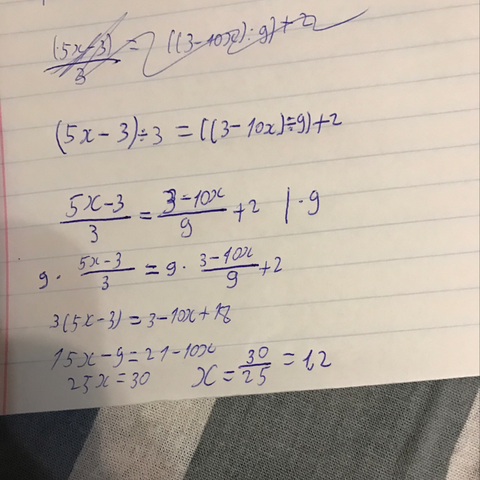 (5x-3)/3 = ((3-10x):9)+2
(5x-3)÷3 = ((3-10x)÷9)+2
(5x-3)/3 = (3-10x)/9 + 2 | · 9
9 · (5x-3)/3 = 9 · (3-10x)/9 + 2
3(5x-3) = 3-10x+18
15x-9 = 21-10x
25x = 30 x = 30/25 = 1,2